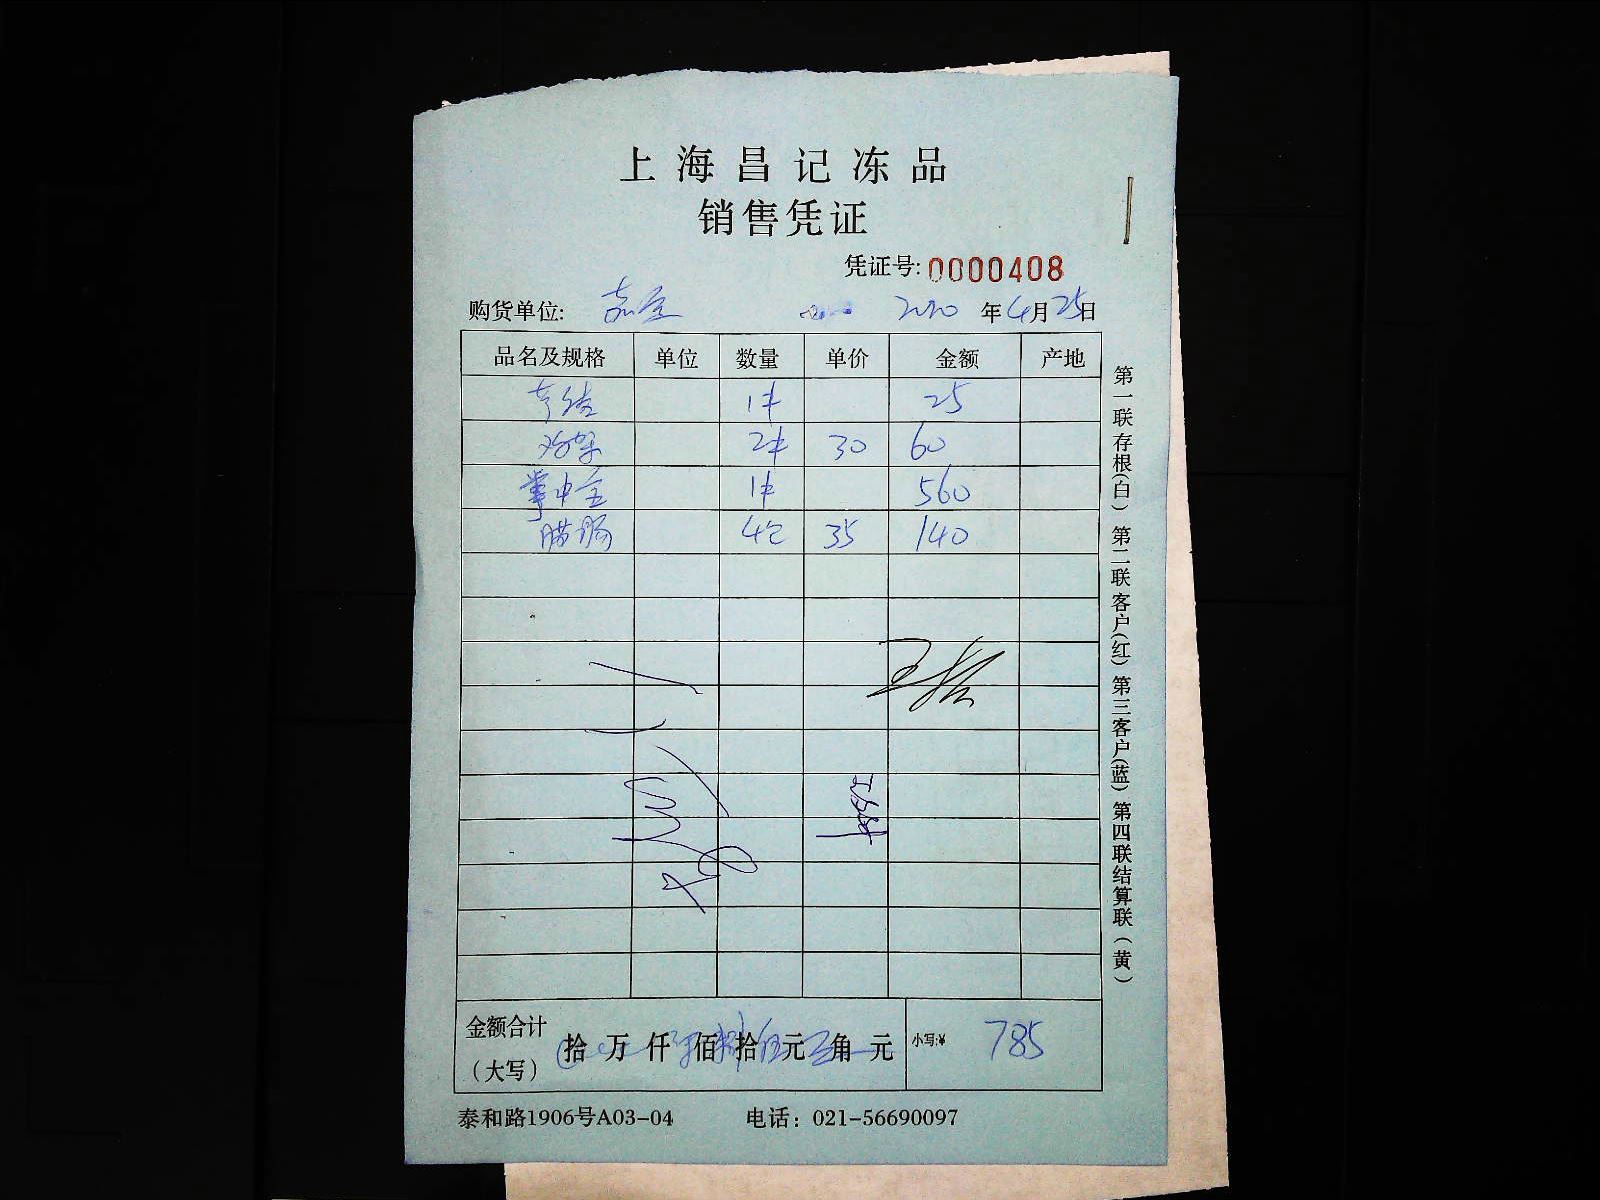 上海昌记冻品
销售凭证
凭证号: 0000408
购货单位: 2020 年 4 月 25 日
品名及规格 单位 数量 单价 金额 产地
1件 25
鸡架 2件 30 60
掌中宝 1件 560
腊肠 4包 35 140
金额合计 (大写) 拾 万 仟 佰 拾 元 角 元 小写:¥ 785
泰和路1906号A03-04 电话: 021-56690097
第一联存根(白) 第二联客户(红) 第三客户(蓝) 第四联结算联(黄)